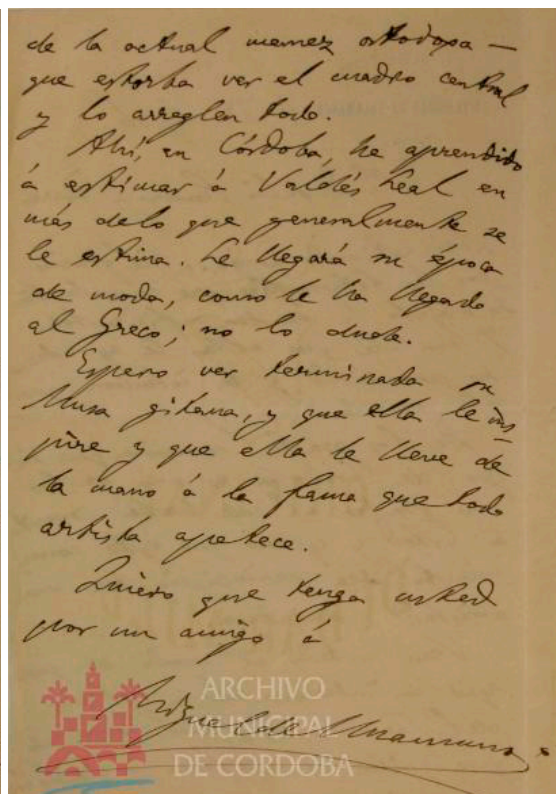 de la actual memez ortodoxa —
que estorba ver el cuadro central
y lo arreglen todo.
Ahí, en Córdoba, he aprendido
á estimar á Valdés Leal en
más de lo que generalmente se
le estima. Le llegará su época
de moda, como le ha llegado
al Greco; no lo dude.
Espero ver terminada su
Musa gitana, y que ella le ins-
pire y que ella le lleve de
la mano á la fama que todo
artista apetece.
Quiero que tenga usted
por un amigo á
Miguel de Unamuno
ARCHIVO
MUNICIPAL
DE CÓRDOBA